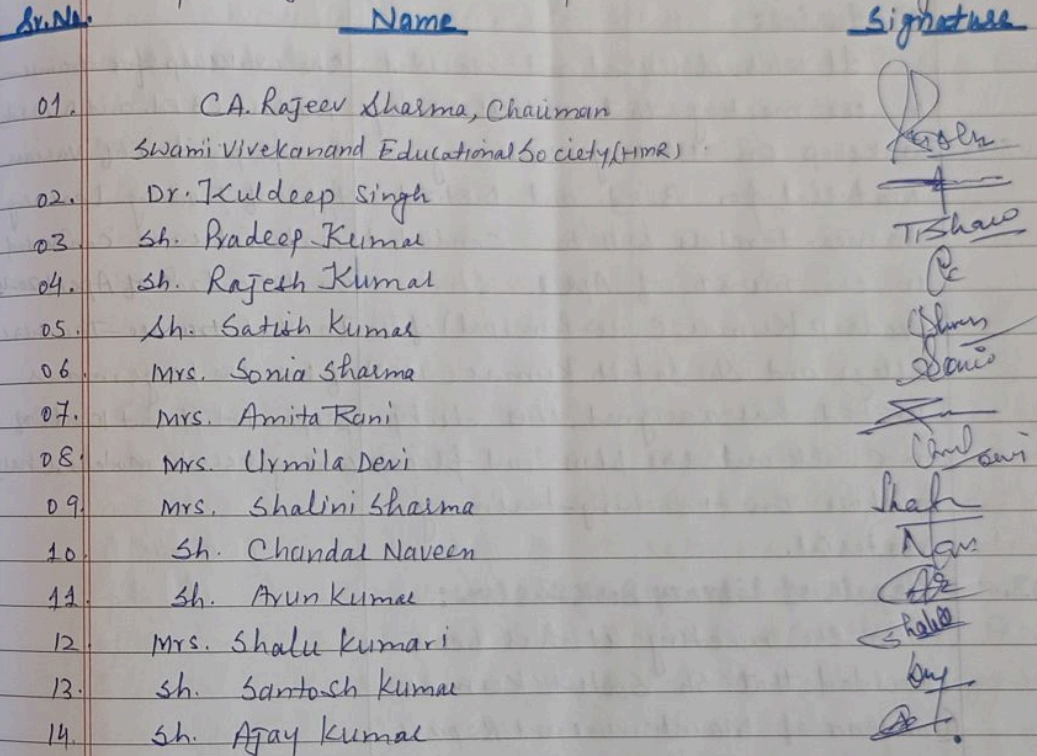 Sr.No. Name Signature
01. CA. Rajeev Sharma, Chairman
Swami Vivekanand Educational Society (HMR).
02. Dr. Kuldeep Singh
03 Sh. Pradeep Kumar
04. Sh. Rajesh Kumar
05. Sh. Satish Kumar
06 Mrs. Sonia Sharma
07. Mrs. Amita Rani
08 Mrs. Urmila Devi Devi
09 Mrs. Shalini Sharma
10 Sh. Chandar Naveen
11. Sh. Arun Kumar
12 Mrs. Shalu Kumari
13. Sh. Santosh Kumar
14. Sh. Ajay Kumar